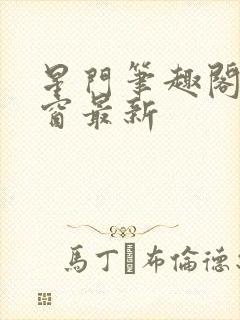 星門筆趣閣
窗最新
馬丁 布倫德